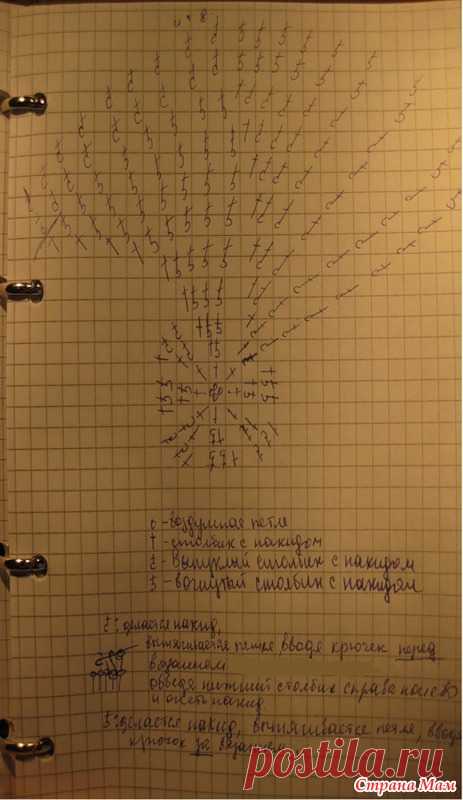 о - воздушная петля
† - столбик с накидом
- выпуклый столбик с накидом
- вогнутый столбик с накидом
делается накид,
вытягивается петля, вводя крючек перед
вязанием
обводя нижний столбик справа налево
и опять накид
делается накид, вытягивается петля, вводя
крючок за вязанием
postila.ru
Страна Мам